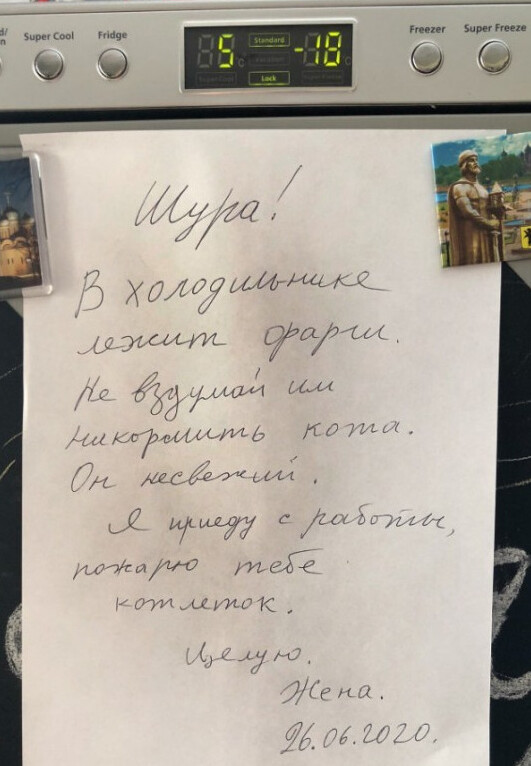 Super Cool
Fridge
5
Standard
-18
Lock
Freezer
Super Freeze
Шура!
В холодильнике
лежит фарш.
Не вздумай им
накормить кота.
Он несвежий.
Я приеду с работы,
пожарю тебе
котлеток.
Целую.
Жена.
26.06.2020.